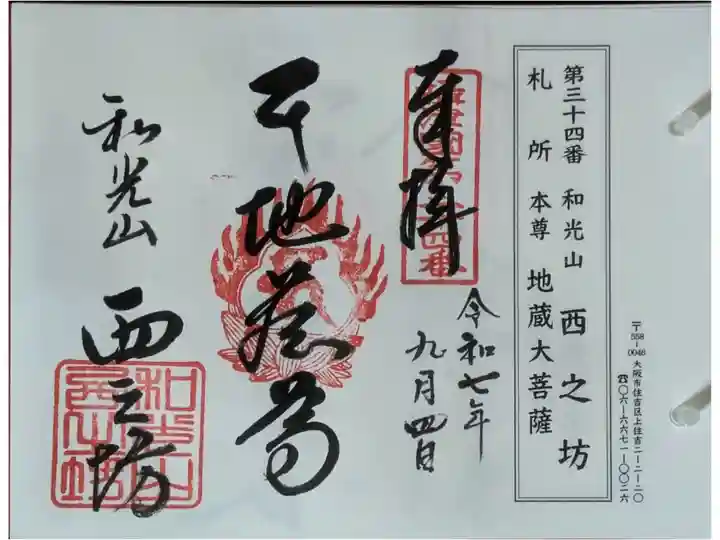 〒558-0046 大阪市住吉区上住吉二-二-二〇
☎〇六-六六七一-〇〇二六
第三十四番 和光山 西之坊
札所本尊 地蔵大菩薩
奉拝
令和七年
九月四日
地蔵尊
和光山 西之坊